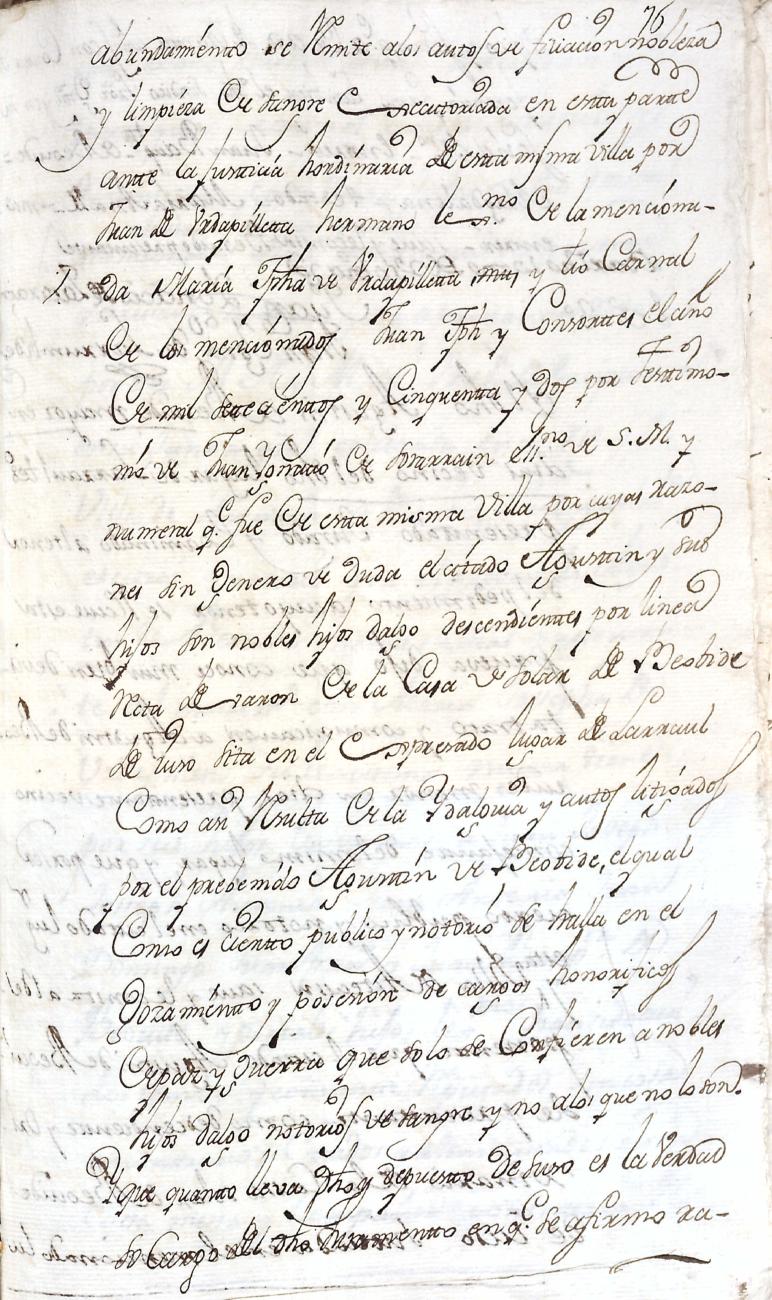 76
abundamiento se Rmite alos autos de filiacion nobleza
y limpieza De sangre Executoriada en esta parte
antte la justicia hordinaria de estta misma villa por
Juan de Vrdapilleta hermano lexmo. De la menciona-
da Maria Jpha de Vrdapilleta y tio Carnal
De los mencionados Juan Jph y Consortes el año
De mil settecienttos y Cinquentta y dos por testtimo-
nio de Juan Ygnacio De Yrarrain essno. de S. M. y
numeral q.e fue De estta misma villa por cuyas razo-
nes sin genero de duda el citado Agusttin y sus
hijos son nobles hijos dalgo descendientes por linea
Recta de varon De la Casa de solar de Beobide
de suso sita en el Expresado lugar de Larraul
Como asi Resulta De la Ydalguia y autos litigados
por el prebenido Agusttin de Beobide, el qual
Como es cientto publico y notorio se halla en el
Gozamientto y posesion de cargos honorificos
De paz y guerra que solo se Confieren a nobles
hijos dalgo notorios de sangre y no alos que no lo son.
Y que quanto lleva dho y depuesto de suso es la verdad
so Cargo del dho Juramentto en q.e se afirmo ra-